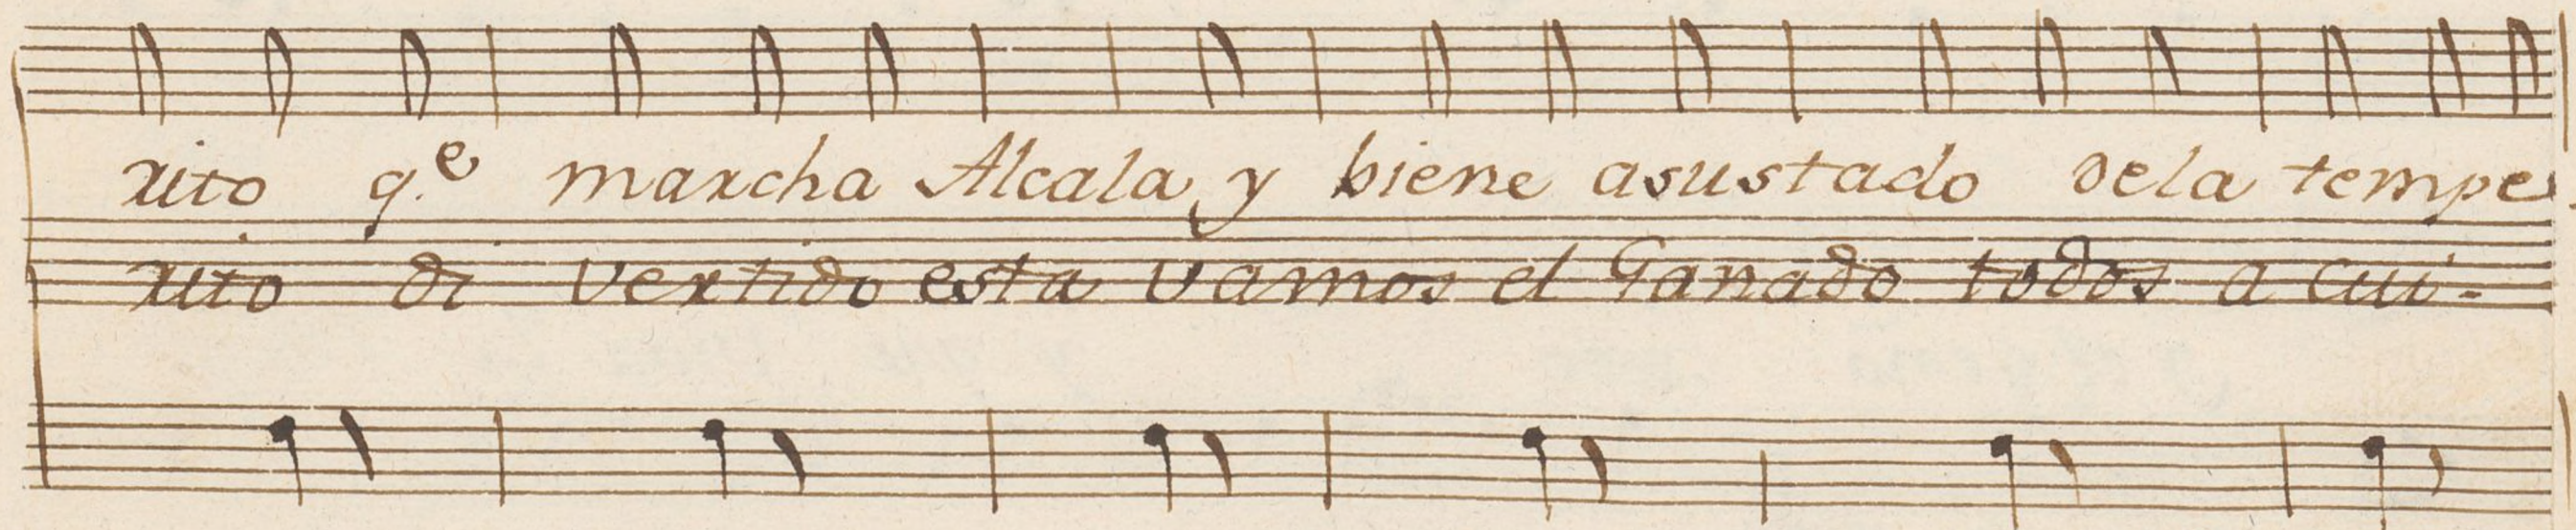 rito q.e marcha Alcala y biene asustado dela tempe
rito di vertido esta vamos el Ganado todos a cui-